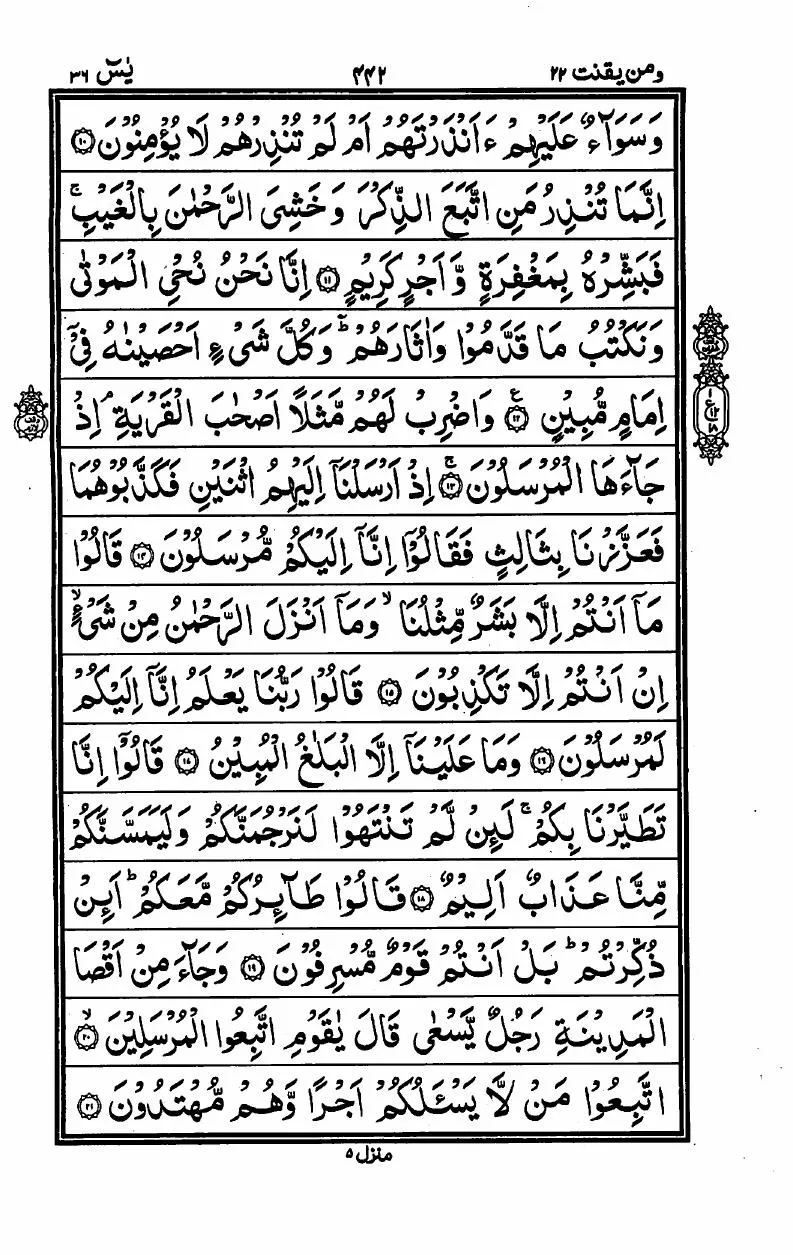 ومن یقنت ۲۲ ۴۴۲ یٰسٓ ۳۶
وَسَوَآءٌ عَلَیْهِمْ ءَاَنْذَرْتَهُمْ اَمْ لَمْ تُنْذِرْهُمْ لَا یُؤْمِنُوْنَ ﴿۱۰﴾
اِنَّمَا تُنْذِرُ مَنِ اتَّبَعَ الذِّكْرَ وَخَشِیَ الرَّحْمٰنَ بِالْغَیْبِ ۚ
فَبَشِّرْهُ بِمَغْفِرَةٍ وَّاَجْرٍ كَرِیْمٍ ﴿۱۱﴾ اِنَّا نَحْنُ نُحْیِ الْمَوْتٰی
وَنَكْتُبُ مَا قَدَّمُوْا وَاٰثَارَهُمْ ؕ وَكُلَّ شَیْءٍ اَحْصَیْنٰهُ فِیْۤ
اِمَامٍ مُّبِیْنٍ ﴿۱۲﴾ وَاضْرِبْ لَهُمْ مَّثَلًا اَصْحٰبَ الْقَرْیَةِ ۘ اِذْ
جَآءَهَا الْمُرْسَلُوْنَ ۚ﴿۱۳﴾ اِذْ اَرْسَلْنَاۤ اِلَیْهِمُ اثْنَیْنِ فَكَذَّبُوْهُمَا
فَعَزَّزْنَا بِثَالِثٍ فَقَالُوْۤا اِنَّاۤ اِلَیْكُمْ مُّرْسَلُوْنَ ﴿۱۴﴾ قَالُوْا
مَاۤ اَنْتُمْ اِلَّا بَشَرٌ مِّثْلُنَا ۙ وَمَاۤ اَنْزَلَ الرَّحْمٰنُ مِنْ شَیْءٍ ۙ
اِنْ اَنْتُمْ اِلَّا تَكْذِبُوْنَ ﴿۱۵﴾ قَالُوْا رَبُّنَا یَعْلَمُ اِنَّاۤ اِلَیْكُمْ
لَمُرْسَلُوْنَ ﴿۱۶﴾ وَمَا عَلَیْنَاۤ اِلَّا الْبَلٰغُ الْمُبِیْنُ ﴿۱۷﴾ قَالُوْۤا اِنَّا
تَطَیَّرْنَا بِكُمْ ۚ لَئِنْ لَّمْ تَنْتَهُوْا لَنَرْجُمَنَّكُمْ وَلَیَمَسَّنَّكُمْ
مِّنَّا عَذَابٌ اَلِیْمٌ ﴿۱۸﴾ قَالُوْا طَآئِرُكُمْ مَّعَكُمْ ؕ اَئِنْ
ذُكِّرْتُمْ ؕ بَلْ اَنْتُمْ قَوْمٌ مُّسْرِفُوْنَ ﴿۱۹﴾ وَجَآءَ مِنْ اَقْصَا
الْمَدِیْنَةِ رَجُلٌ یَّسْعٰی قَالَ یٰقَوْمِ اتَّبِعُوا الْمُرْسَلِیْنَ ۙ﴿۲۰﴾
اتَّبِعُوْا مَنْ لَّا یَسْـَٔلُكُمْ اَجْرًا وَّهُمْ مُّهْتَدُوْنَ ﴿۲۱﴾
منزل ۵